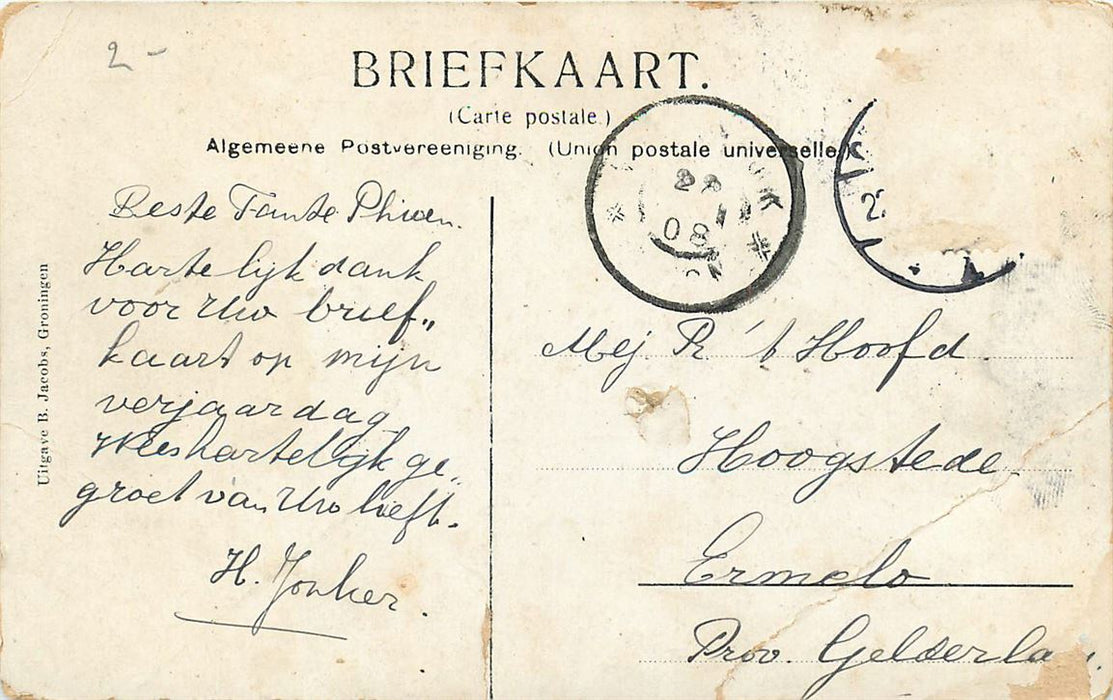 2-
BRIEFKAART.
(Carte postale.)
Algemeene Postvereeniging. (Union postale universelle)
28
08
2
Beste Tante
Hartelijk dank
voor Uw brief„
kaart op mijn
verjaardag
Wees hartelijk ge„
groet van Uw liefh.
H. Jonker.
Uitgave B. Jacobs, Groningen
Mej R 't Hoofd.
Hoogstede
Ermelo
Prov. Gelderla